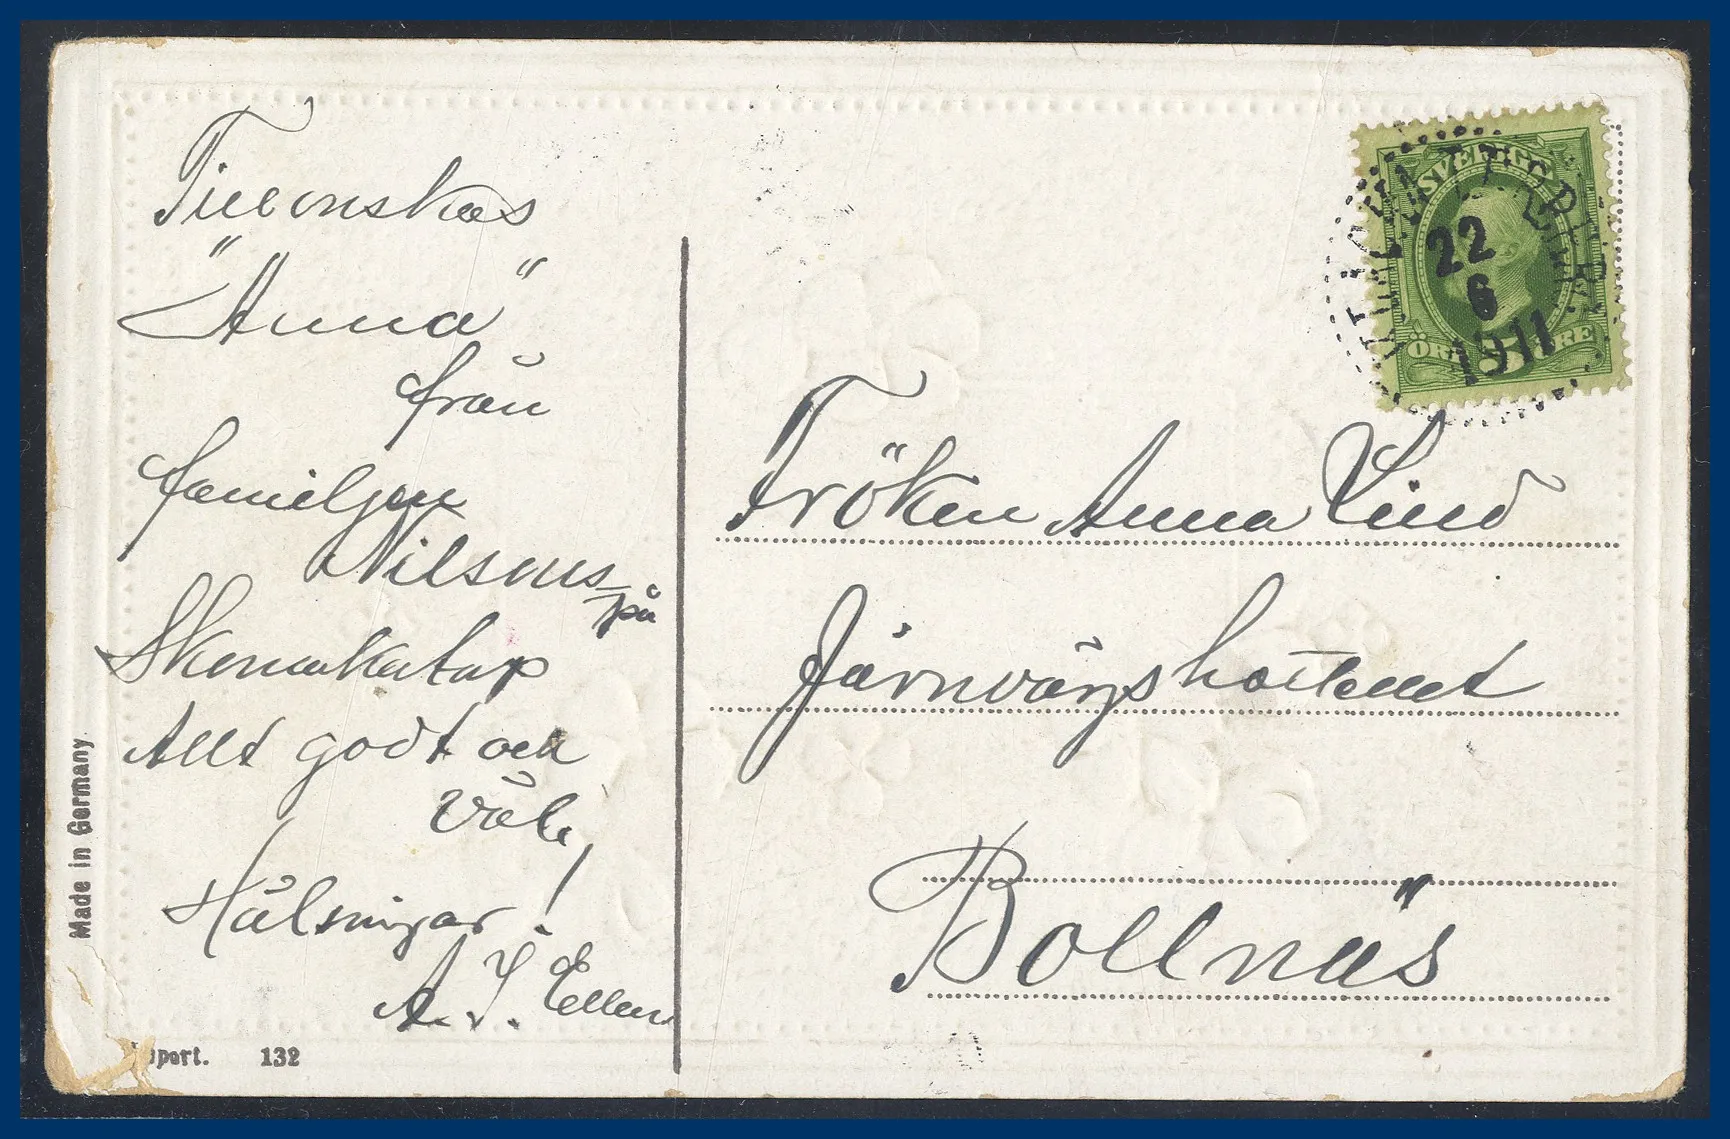 Tillönskas
"Anna"
från
familjen
Nilsons
på
Allt godt och
väl,
Hälsningar!
A. J. Ellen
Made in Germany.
132
SVERIGE
22
6
1911
ÖRE 5 ÖRE
Fröken Anna Lind
Järnvägshotellet
Bollnäs